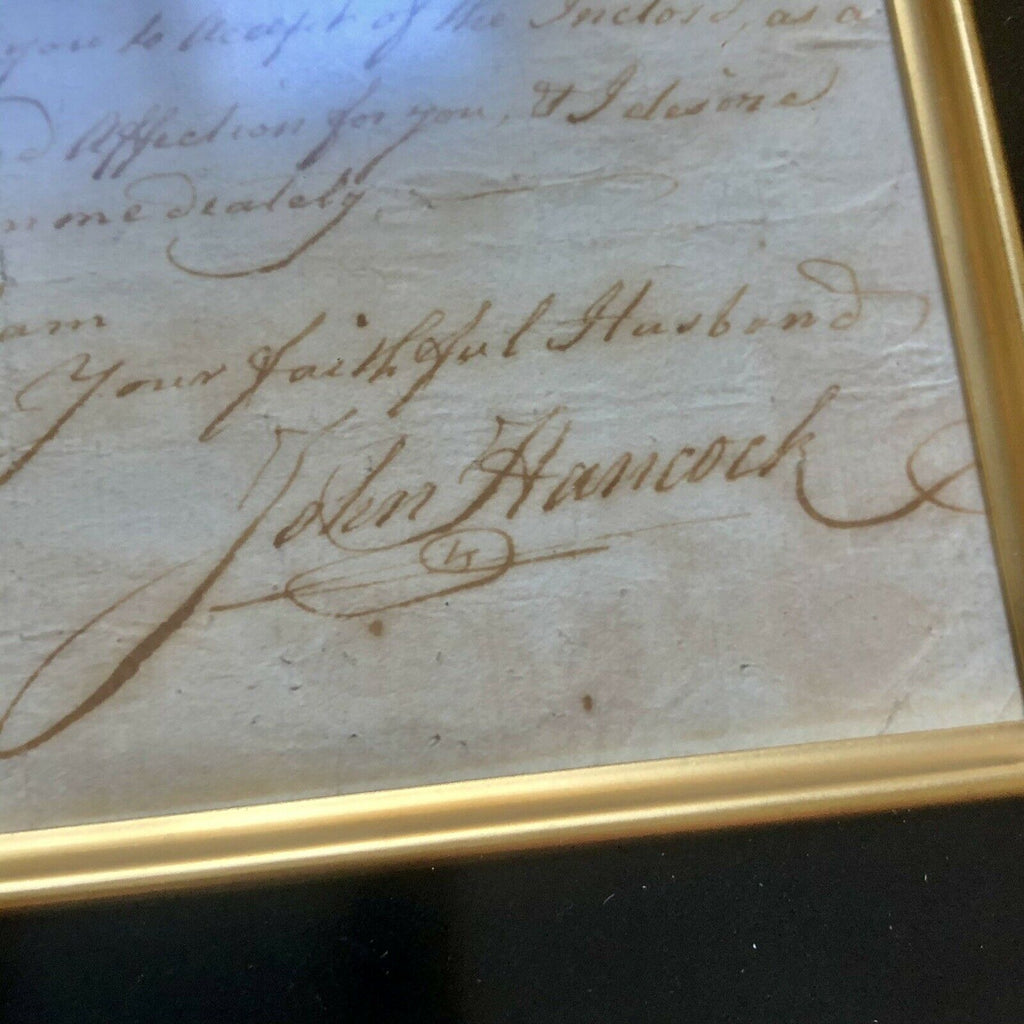 you to Accept of the Inclosd, as a
Affection for you, & I desire
mmediately
am
Your faithful Husband
John Hancock